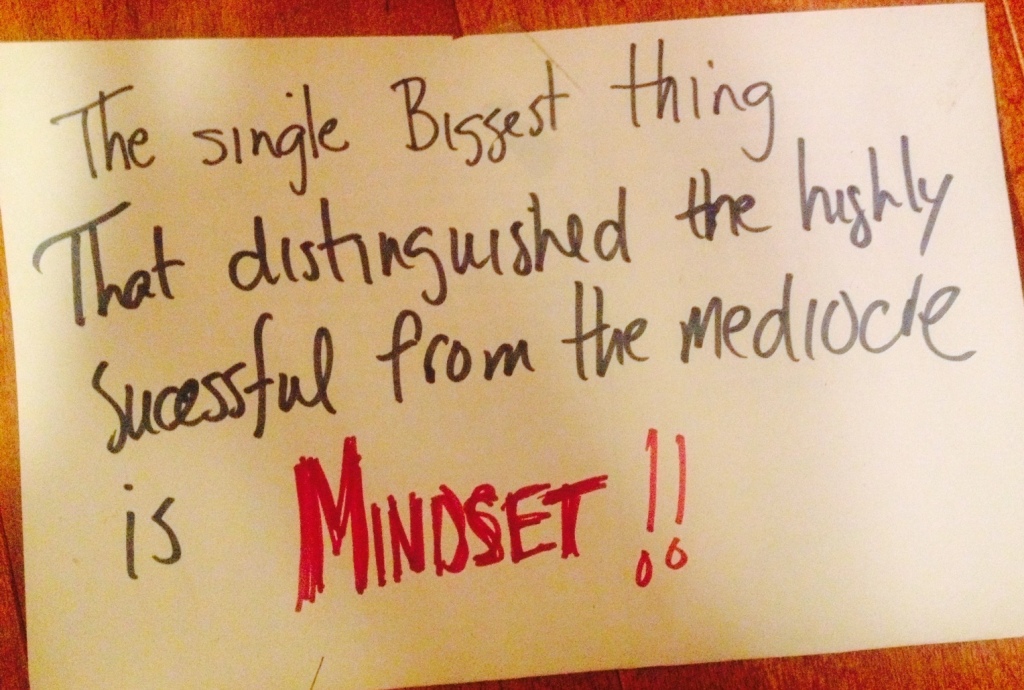 The single Biggest thing
That distinguished the highly
Sucessful from the mediocre
is MINDSET !!